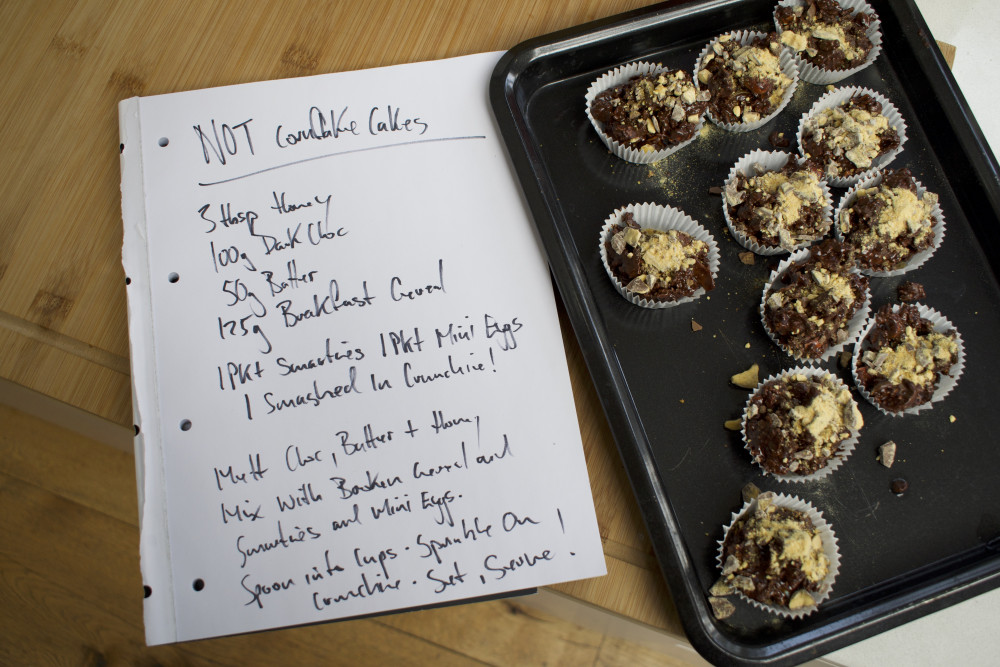 NOT Cornflake Cakes
3 tbsp Honey
100g Dark Choc
50g Butter
125g Breakfast Cereal
1 Pkt Smarties 1 Pkt Mini Eggs
1 Smashed In Crunchie!
Melt Choc, Butter + Honey
Mix With Broken Cereal and
Smarties and Mini Eggs.
Spoon into Cups. Sprinkle On
Crunchie. Set, Serve!